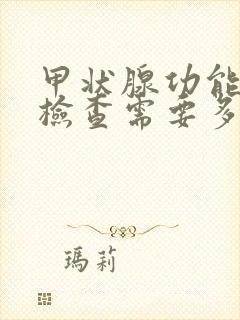 甲状腺功能
檢查需要多
瑪莉